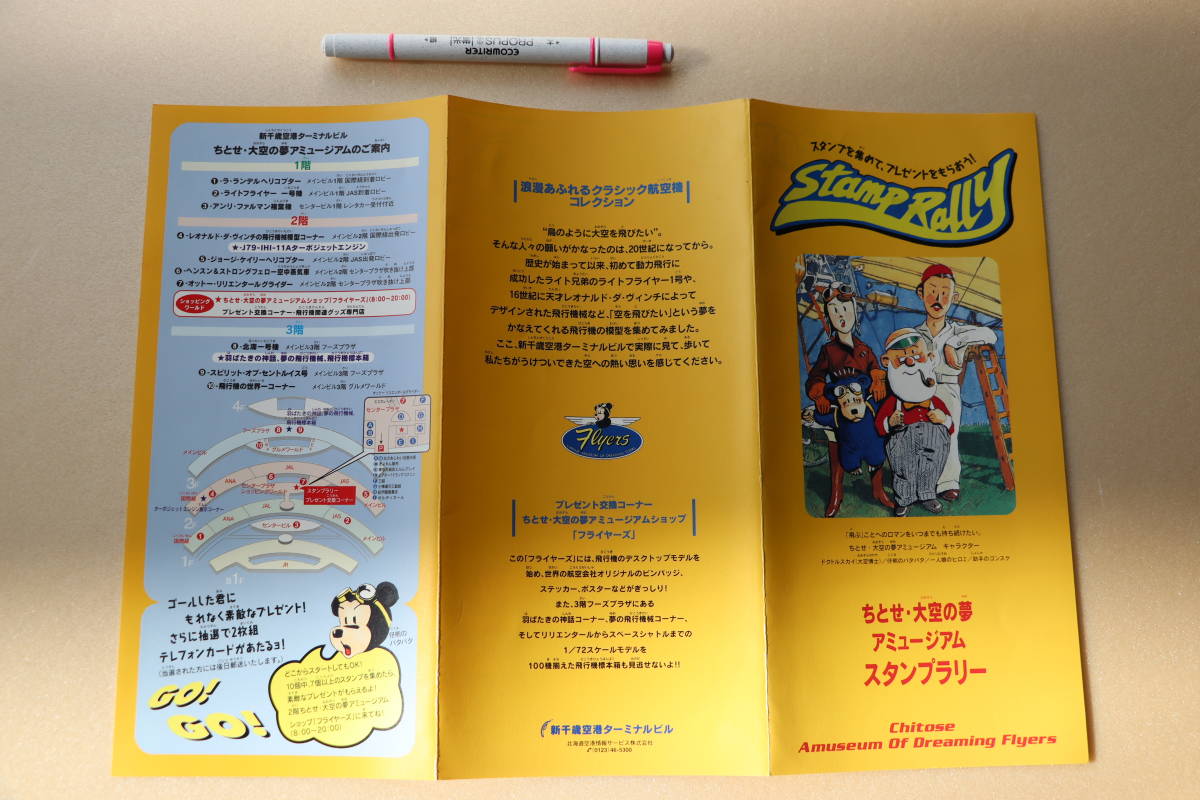 ECOWRITER
PROPUS
新千歳空港ターミナルビル
ちとせ・大空の夢アミュージアムのご案内
1階
1・ラ・ランデルヘリコプター メインビル1階 国際線到着ロビー
2・ライトフライヤー 一号機 メインビル1階 JAS到着ロビー
3・アンリ・ファルマン複葉機 センタービル1階 レンタカー受付付近
2階
4・レオナルド・ダ・ヴィンチの飛行機械模型コーナー メインビル2階 国際線出発ロビー
★・J79-IHI-11Aターボジェットエンジン
5・ジョージ・ケイリーヘリコプター メインビル2階 JAS出発ロビー
6・ヘンスン&ストロングフェロー空中蒸気車 メインビル2階 センタープラザ吹き抜け上部
7・オットー・リリエンタールグライダー メインビル2階 センタープラザ吹き抜け上部
ショッピングワールド
★ちとせ・大空の夢アミュージアムショップ「フライヤーズ」(8:00〜20:00)
プレゼント交換コーナー・飛行機関連グッズ専門店
3階
8・北海一号機 メインビル3階 フーズプラザ
★羽ばたきの神話、夢の飛行機械、飛行機標本箱
9・スピリット・オブ・セントルイス号 メインビル3階 フーズプラザ
10・飛行機の世界一コーナー メインビル3階 グルメワールド
4F
羽ばたきの神話・夢の飛行機械、
飛行機標本箱
フーズプラザ 8 ★ 9
メインビル
10 グルメワールド
センタープラザ
7
A
B
C
D
G
H
E
I
P
3F
ANA
JAL
JAS
国際線
4
6
センタープラザ
ショッピングワールド
7
5
メインビル
スタンプラリー
プレゼント交換コーナー
ターボジェットエンジン展示コーナー
2F
ANA
JAL
JAS 2
センタービル 3
国際線
1
メインビル
1F
JR
B1F
ゴールした君に
もれなく素敵なプレゼント!
さらに抽選で2枚組
テレフォンカードがあたるョ!
(当選された方には後日郵送いたします。)
GO!
GO!
仔熊の
パタパタ
どこからスタートしてもOK!
10個中、7個以上のスタンプを集めたら、
素敵なプレゼントがもらえるよ!
2階ちとせ・大空の夢アミュージアム
ショップ「フライヤーズ」に来てね!
(8:00〜20:00)
浪漫あふれるクラシック航空機
コレクション
“鳥のように大空を飛びたい”。
そんな人々の願いがかなったのは、20世紀になってから。
歴史が始まって以来、初めて動力飛行に
成功したライト兄弟のライトフライヤー1号や、
16世紀に天才レオナルド・ダ・ヴィンチによって
デザインされた飛行機械など、「空を飛びたい」という夢を
かなえてくれる飛行機の模型を集めてみました。
ここ、新千歳空港ターミナルビルで実際に見て、歩いて
私たちがうけついできた空への熱い思いを感じてください。
Flyers
プレゼント交換コーナー
ちとせ・大空の夢アミュージアムショップ
「フライヤーズ」
この「フライヤーズ」には、飛行機のデスクトップモデルを
始め、世界の航空会社オリジナルのピンバッジ、
ステッカー、ポスターなどがぎっしり!
また、3階フーズプラザにある
羽ばたきの神話コーナー、夢の飛行機械コーナー、
そしてリリエンタールからスペースシャトルまでの
1/72スケールモデルを
100機揃えた飛行機標本箱も見逃せないよ!!
新千歳空港ターミナルビル
北海道空港情報サービス株式会社
(0123)46-5300
スタンプを集めて、プレゼントをもらおう!
Stamp Rally
「飛ぶ」ことへのロマンをいつまでも持ち続けたい。
ちとせ・大空の夢アミュージアム キャラクター
ドクトルスカイ(大空博士)/仔熊のパタパタ/一人娘のヒロミ/助手のゴンスケ
ちとせ・大空の夢
アミュージアム
スタンプラリー
Chitose
Amuseum Of Dreaming Flyers